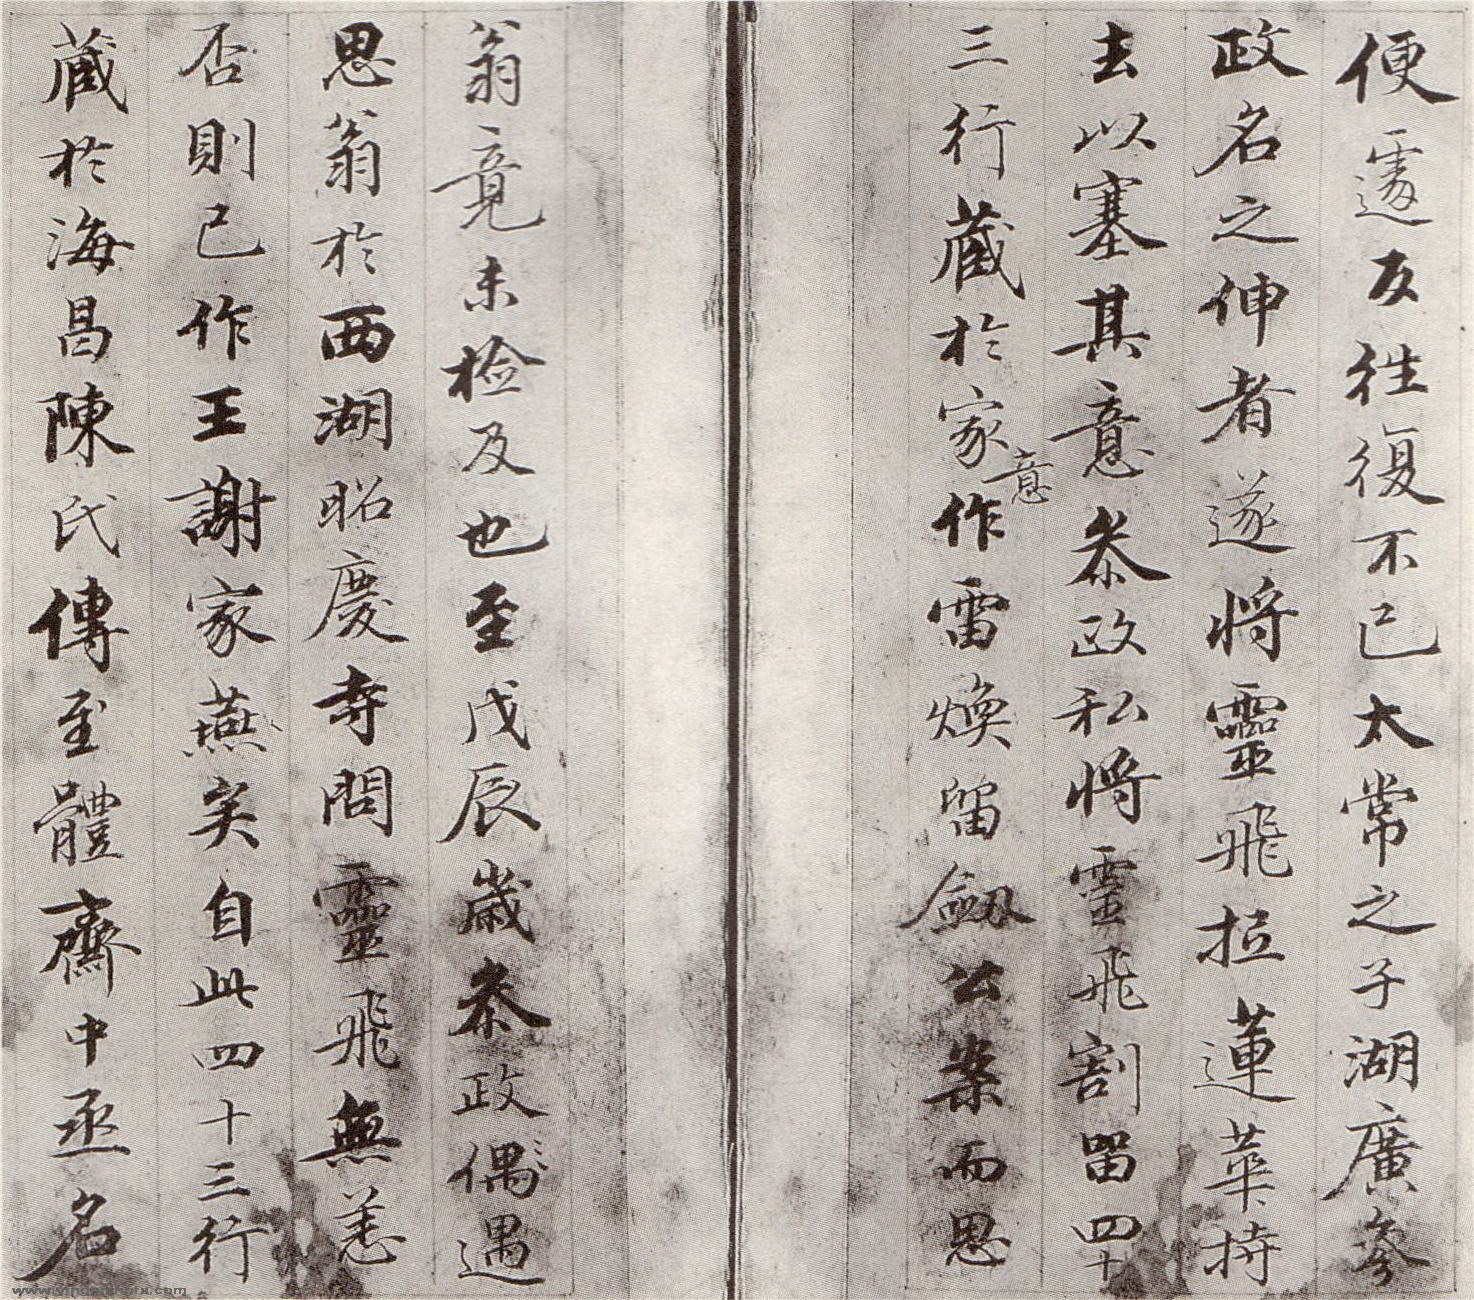 便遽反往復不已太常之子湖廣參
政名之伸者遂將靈飛拉蓮華持
去以塞其意參政私將靈飛割留四十
三行藏於家意作雷煥留劍公案而思
翁竟未檢及也至戊辰歲參政偶遇
思翁於西湖昭慶寺問靈飛無恙
否則已作王謝家燕矣自此四十三行
藏於海昌陳氏傳至體齋中丞名